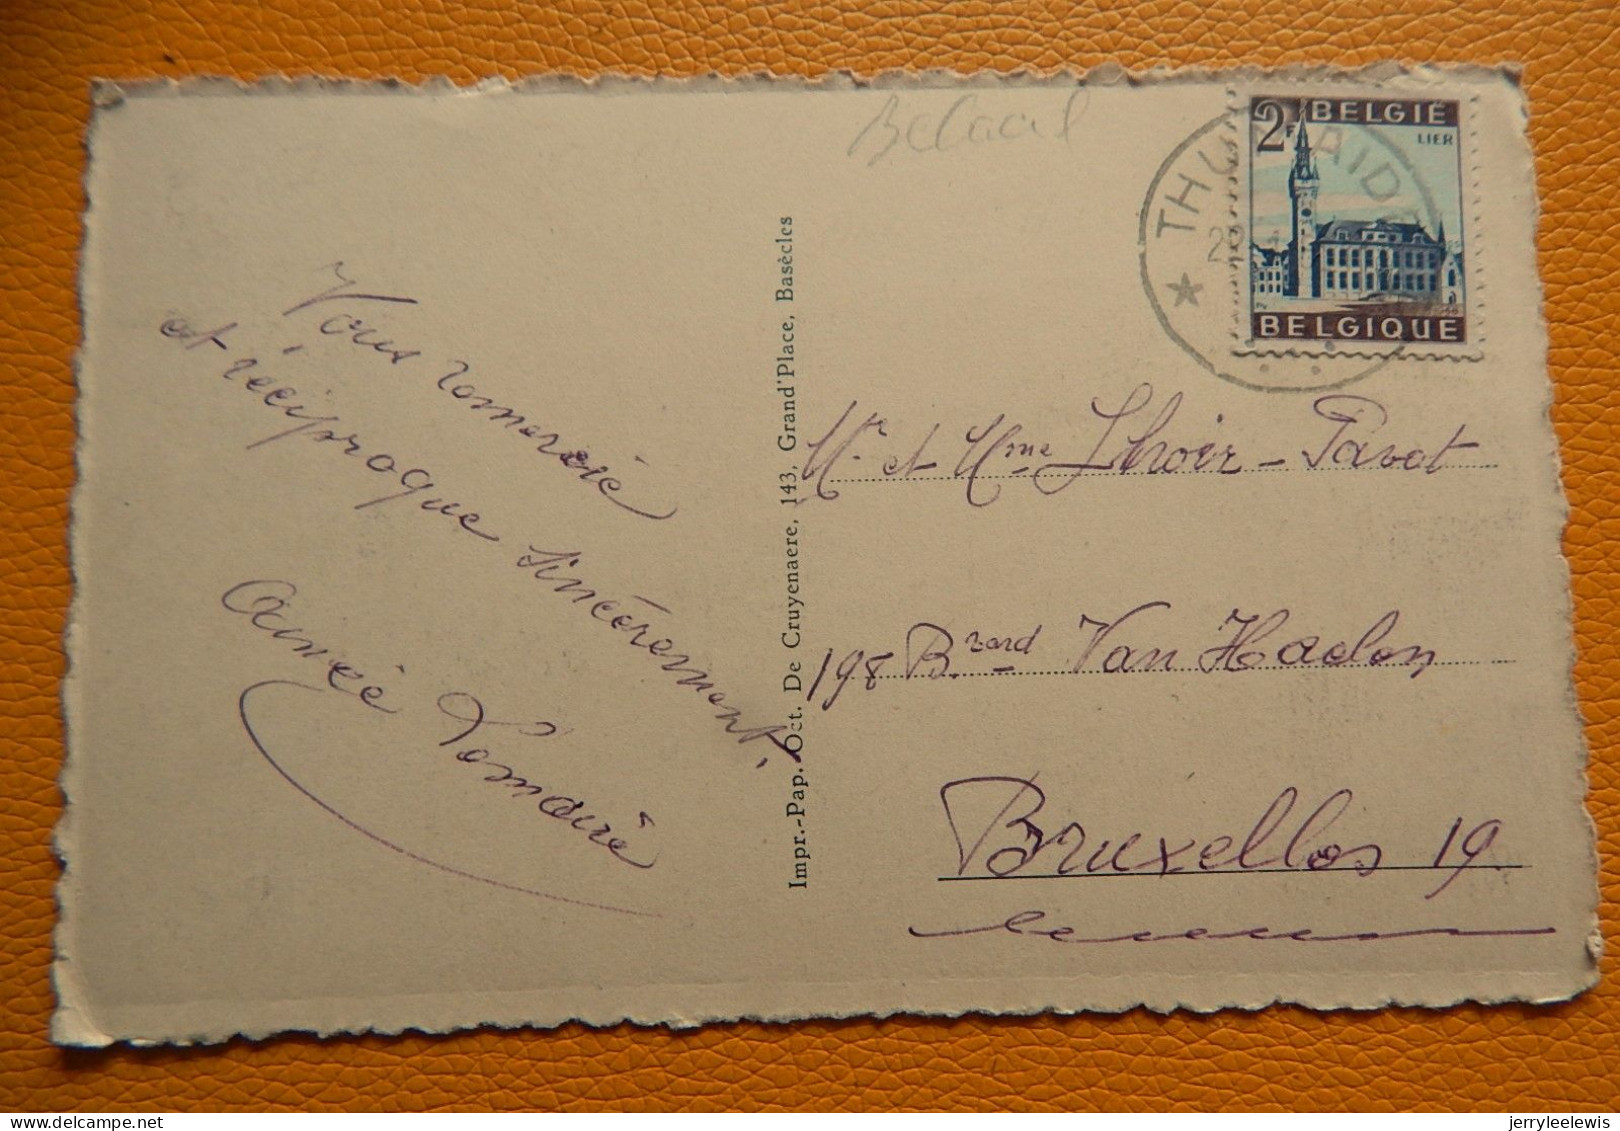 Vous remercie
et réciproque sincèrement.
Aimée Lemaire
Impr.-Pap. Oct. De Cruyenaere, 143, Grand'Place, Basècles
Beloeil
THU AIDE
2F BELGIË
LIER
BELGIQUE
Mr. et Mme Lhoir - Pavot
198 B.vard Van Haelen
Bruxelles 19.
delcampe.net
jerryleelewis